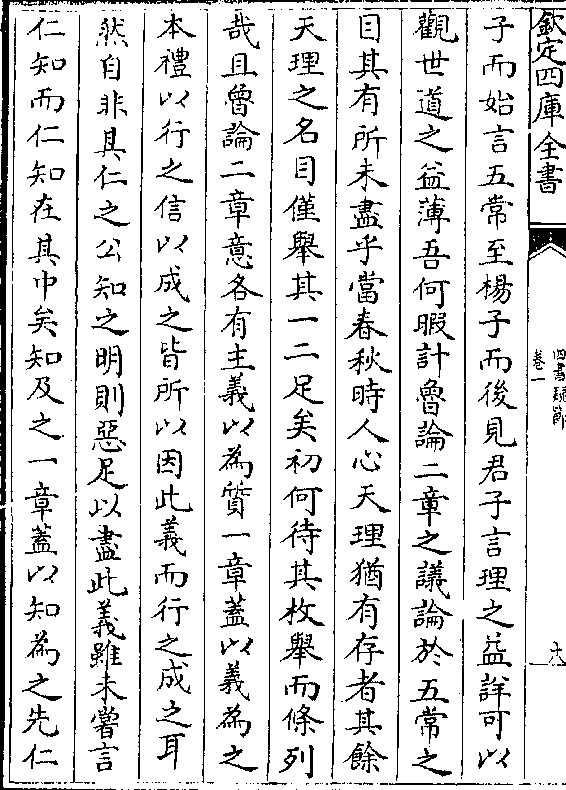 欽定四庫全書
四書疑節
卷一
子而始言五常至楊子而後見君子言理之益詳可以
觀世道之益薄吾何暇計魯論二章之議論於五常之
目其有所未盡乎當春秋時人心天理猶有存者其餘
天理之名目僅舉其一二足矣初何待其枚舉而條列
哉且魯論二章意各有主義以為質一章蓋以義為之
本禮以行之信以成之皆所以因此義而行之成之耳
然自非具仁之公知之明則惡足以盡此義雖未嘗言
仁知而仁知在其中矣知及之一章蓋以知為之先仁